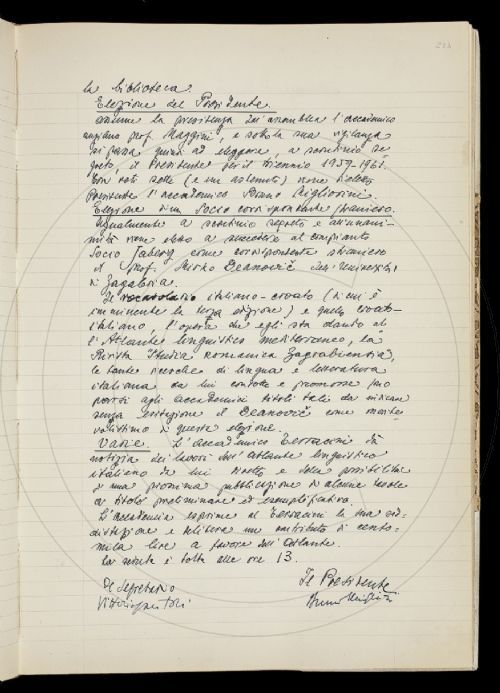 la biblioteca.
Elezione del Presidente.
Assume la presidenza dell'assemblea l'accademico
anziano prof. Maggini, e sotto la sua vigilanza
si passa quindi ad eleggere, a scrutinio se-
greto, il Presidente per il triennio 1959-1961.
Con voti sette (e un astenuto) viene rieletto
Presidente l'accademico Bruno Migliorini.
Elezione d'un Socio corrispondente straniero.
Ugualmente a scrutinio segreto e all'unani-
mità viene eletto a succedere al compianto
Socio Jaberg come corrispondente straniero
il prof. Mirko Deanović dell'Università
di Zagabria.
Il vocabolario italiano-croato (di cui è
imminente la terza edizione) e quello croato-
italiano, l'opera che egli sta dando al-
l'Atlante linguistico mediterraneo, la
Rivista Studia romanica Zagrabiensia,
le tante ricerche di lingua e letteratura
italiana da lui condotte e promosse
agli accademici titoli tali da
senza esitazione il Deanović come
validissimo a questa elezione.
Varie. L'accademico Terracini dà
notizia dei lavori dell'Atlante linguistico
italiano da lui diretto e della possibilità
d'una prossima pubblicazione di alcune tavole
a titolo preliminare ed esemplificativo.
L'accademia esprime al Terracini la sua
e delibera un contributo di cento-
mila lire a favore dell'Atlante.
La seduta è tolta alle ore 13.
Il Segretario
Il Presidente
Bruno Migliorini